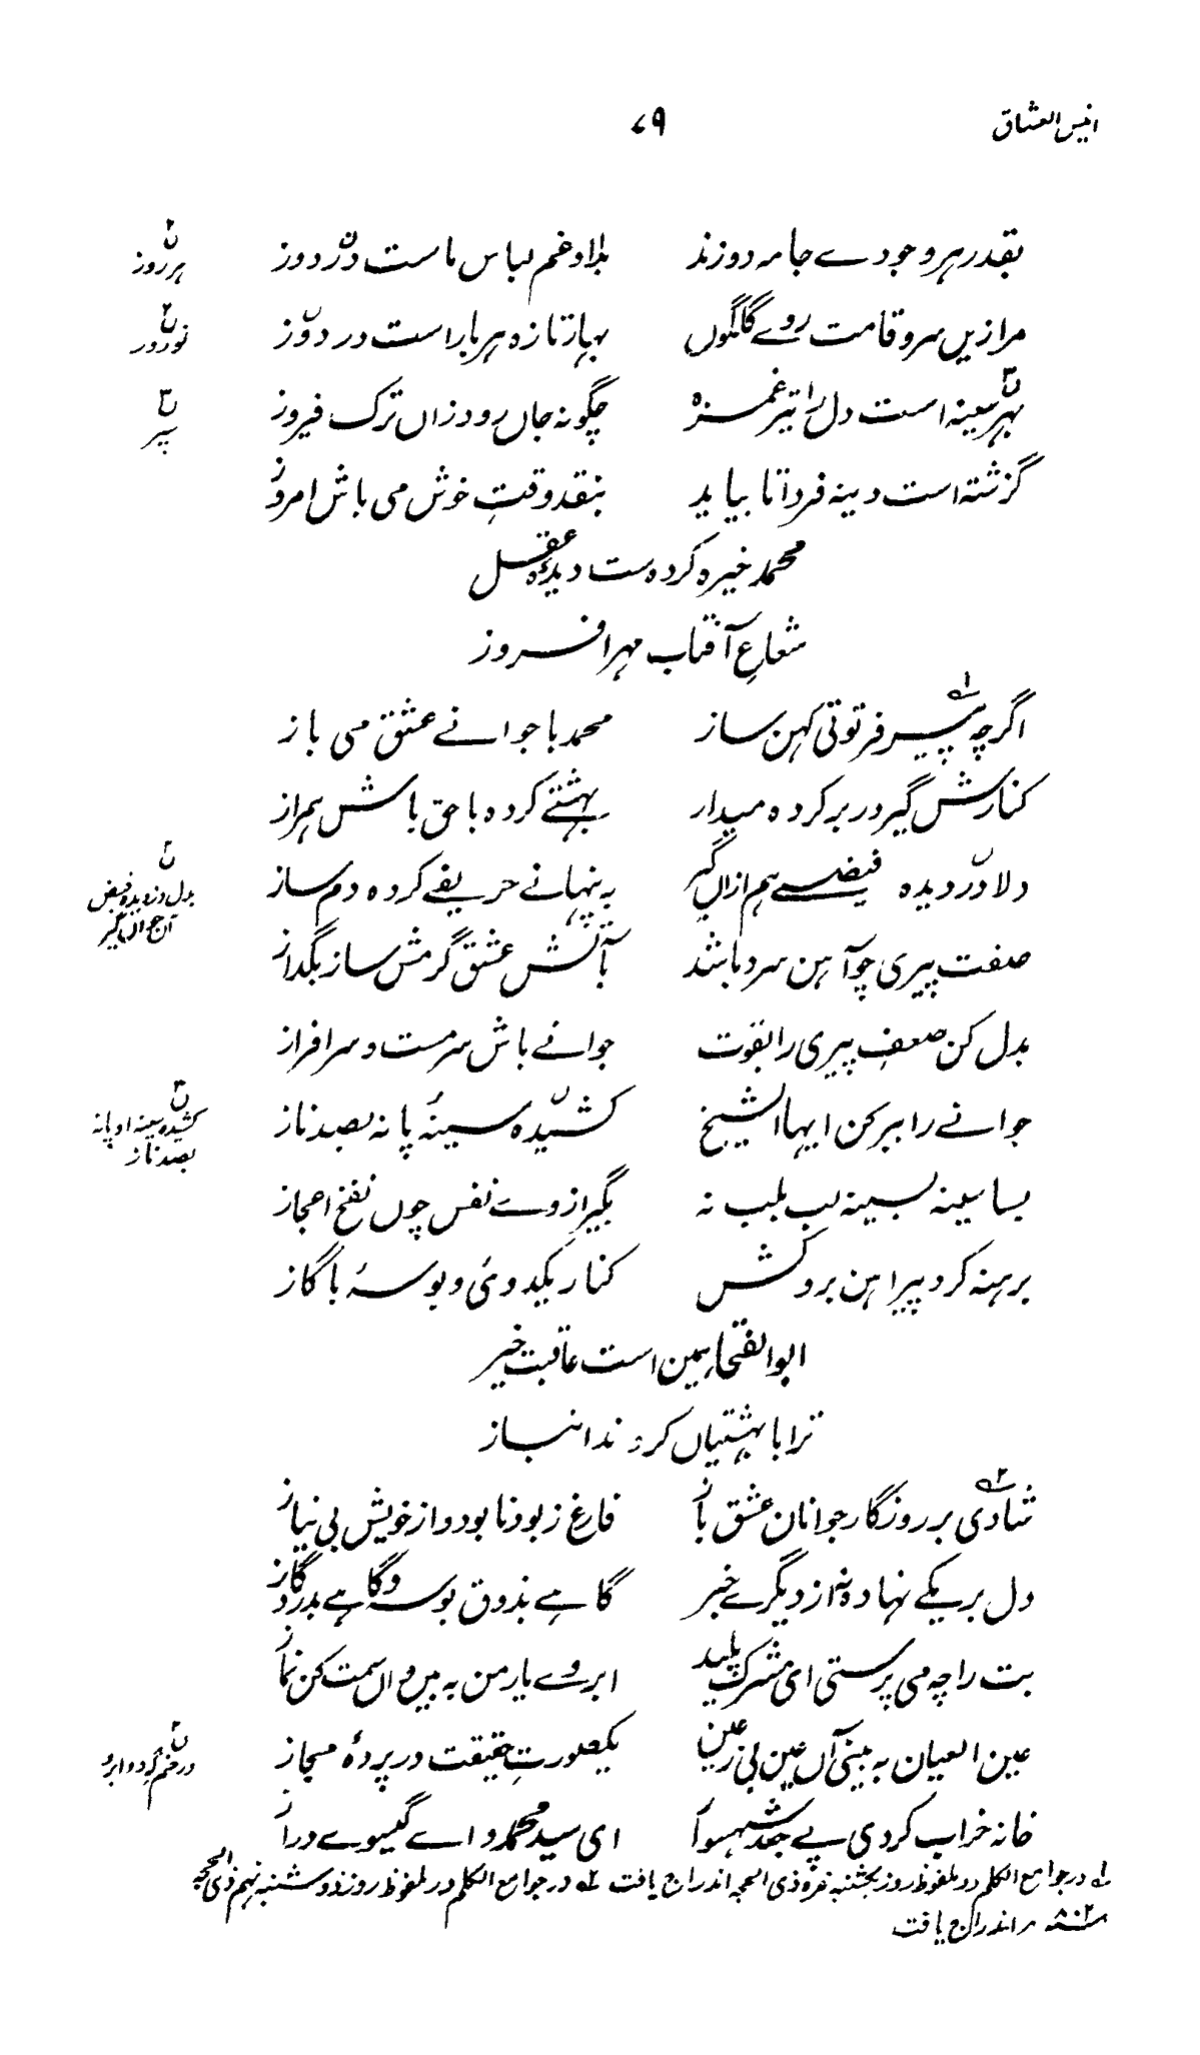 انیس العشاق ۷۹
بقدر ہر وجودے جامہ دوزند بلا و غم لباس ماست در دوز
ہر روز
مرا زیں سرو قامت روے گلگوں بہار تازہ ہر بار است در دوز
نوروز
بہر سینہ است دل را تیر غمزہ چگونہ جاں رود زاں ترک فیروز
پیر
گزشتہ است دینہ فردا تا بیاید بنقد وقت خوش می باش امروز
محمد خیرہ کردہ ست دیدۂ عقل
شعاع آفتاب مہر افروز
اگرچہ پیر فرتوتی کہن ساز محمد با جوانے عشق می باز
کنارش گیر و در بر کردہ میدار بہشتے کردہ با حق باش ہمراز
دلا در دیدہ فیضے ہم ازاں گیر بہ پنہانے حریفے کردہ دم ساز
صفت پیری چو آہن سرد باشد بآتش عشق گرمش ساز بگداز
بدل کن ضعف پیری را بقوت جوانے باش سرمست و سرافراز
جوانے را ببر کن ایہا الشیخ کشیدہ سینۂ پانہ بصد ناز
کشیدہ سینہ او پانہ
بصد ناز
بسا سینہ بسینہ لب بلب نہ بگیر از وے نفس چوں نفخ اعجاز
برہنہ کرد پیراہن بروکش کنار یکدوئ و بوسۂ با گاز
ابو الفتحا ہمین است عاقبت خیر
ترا با بہشتیاں کردند انباز
شادی بر روزگار جوانان عشق باز فارغ ز بود نابود و از خویش بی نیاز
دل بر یکے نہادہ نہ از دیگرے خبر گاہے بذوق بوسہ و گاہے بدرد گاز
بت را چہ می پرستی ای مشرک پلید ابروے یار من بہ بیں و آں سمت کن نماز
عین العیان بہ بینی آں عین بی ز عین یکصورت حقیقت در پردۂ مجاز
در خم دو ابرو
خانہ خراب کردی پے جعد شہسوار ای سید محمد و اے گیسوے دراز
لہ در جوامع الکلم در ملفوظ روز یکشنبہ غرہ ذی الحجہ اندراج یافت ۲ہ در جوامع الکلم در ملفوظ روز دوشنبہ نہم ذی الحجہ
۸۰۲ اندراج یافت